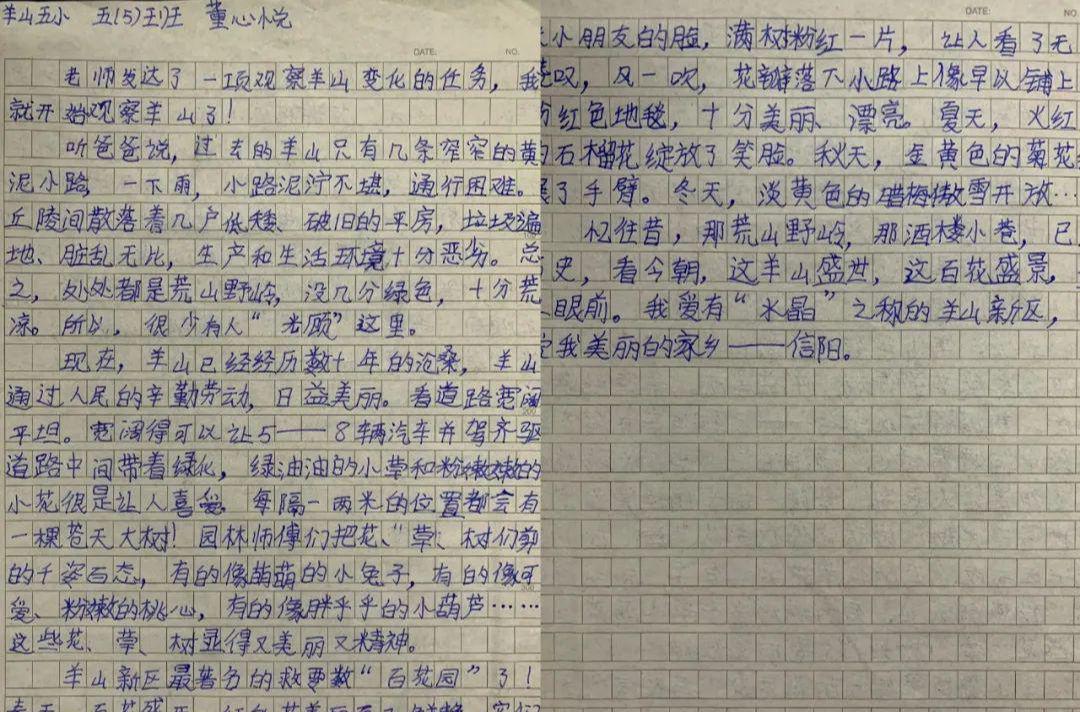 羊山五小 五(5)班 董心悦
DATE: NO.
老师发达了一项观察羊山变化的任务，我
就开始观察羊山了！
听爸爸说，过去的羊山只有几条窄窄的黄
泥小路，一下雨，小路泥泞不堪，通行困难。
丘陵间散落着几户低矮、破旧的平房，垃圾遍
地、脏乱无比，生产和生活环境十分恶劣。总
之，处处都是荒山野岭，没几分绿色，十分荒
凉。所以，很少有人“光顾”这里。
现在，羊山已经经历数十年的沧桑，羊山
通过人民的辛勤劳动，日益美丽。看道路宽阔
平坦。宽阔得可以让5——8辆汽车并驾齐驱
道路中间带着绿化，绿油油的小草和粉嫩嫩的
小花很是让人喜爱。每隔一两米的位置都会有
一棵苍天大树！园林师傅们把花、草、树们剪
的千姿百态，有的像萌萌的小兔子，有的像可
爱、粉嫩的桃心，有的像胖乎乎的小葫芦……
这些花、草、树显得又美丽又精神。
羊山新区最著名的就要数“百花园”了！
DATE: NO.
小朋友的脸，满树粉红一片，让人看了无
叹，风一吹，花瓣落下小路上像早以铺上
红色地毯，十分美丽、漂亮。夏天，火红
石榴花绽放了笑脸。秋天，金黄色的菊花
了手臂。冬天，淡黄色的腊梅傲雪开放…
忆往昔，那荒山野岭，那酒楼小巷，已
史，看今朝，这羊山盛世，这百花盛景，
眼前。我爱有“水晶”之称的羊山新区，
我美丽的家乡——信阳。